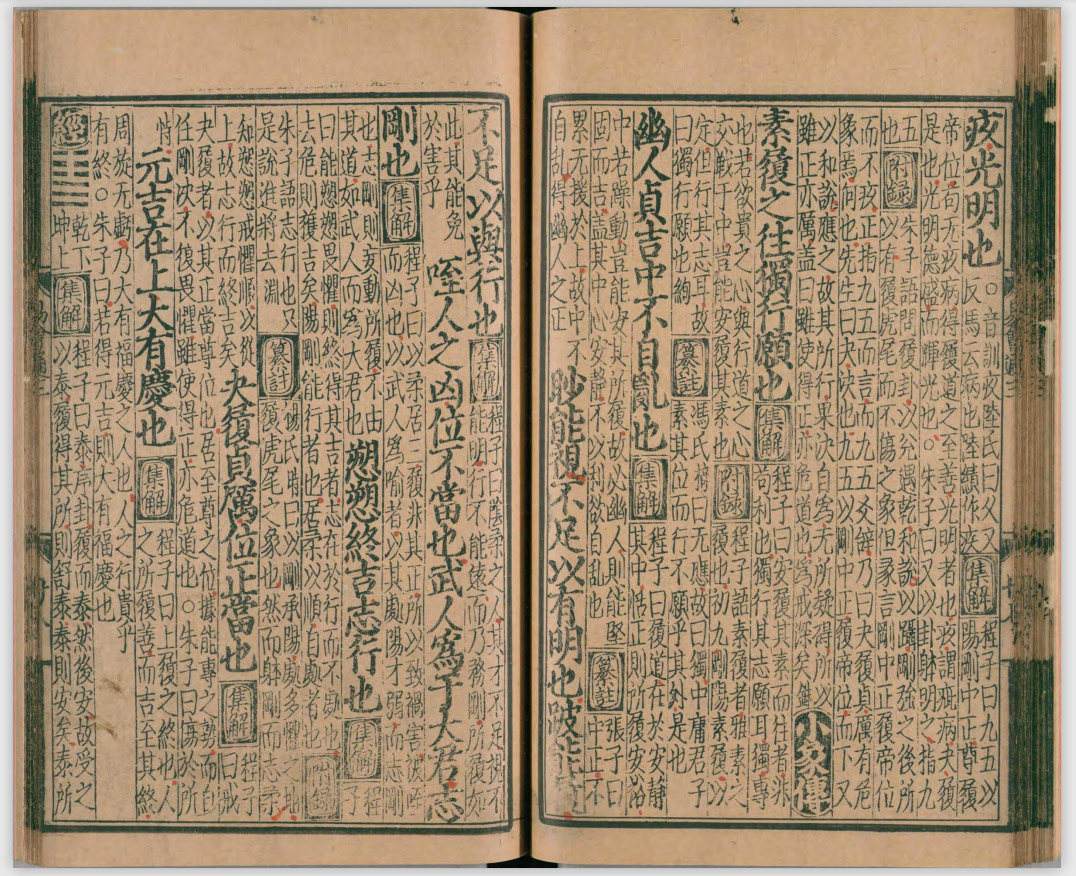 疚光明也
○音訓疚陸氏曰久又
反馬云病也陸績作疾
集解
程子曰九五以
陽剛中正尊履
帝位苟无疚病得履道之至善光明者也疚謂疵病夬履
是也光明德盛而輝光也 朱子曰又以卦體明之指九
五
也
附録
朱子語問履卦以兌遇乾和說以躡剛強之後所
以有履虎尾而不傷之象但彖言剛中正履帝位
而不疚正指九五而言而九五爻辭乃曰夬履貞厲有危
象焉何也先生曰夬決也九五以剛中正履帝位而下又
以和說應之故其所行果決自爲无所疑礙所以
雖正亦厲蓋曰雖使得正亦危道也爲戒深矣銖
小象傳
素履之往獨行願也
集解
程子曰安履其素而往者非
苟利也獨行其志願耳獨專
也若欲貴之心與行道之心
交戰于中豈能安履
附録
程子語素履者雅素之
履也初九剛陽素履以
定但行其志耳故
曰獨行願也約
纂註
馮氏椅曰无應故曰獨中庸君子
素其位而行不願乎其外是也
幽人貞吉中不自亂也
集解
程子曰履道在於安靜
其中恬正則所履安裕
中若躁動豈能安其所履故必幽人則能堅
固而吉蓋其中心安靜不以利欲自亂也
纂註
張子曰
中正不
累无援於上故中不
自亂得幽人之正
眇能視不足以有明也跛能履
不足以與行也
集解
程子曰陰柔之人其才不足視不
能明行不能遠而乃務剛所履如
此其能免
於害乎
咥人之凶位不當也武人爲于大君志
剛也
集解
程子曰以柔居三履非其正所以致禍害被咥
而凶也以武人爲喻者以其處陽才弱而志剛
也志剛則妄動所履不由
其道如武人而爲大君也
愬愬終吉志行也
集解
程子
曰能愬愬畏懼則終得其吉者志在於行而不處也
去危則獲吉矣陽剛能行者也居柔以順自處者也
附録
朱子語志行也只
是說進將去淵
纂註
楊氏時曰以剛承陽處多懼之地
履虎尾之象也然而體剛而志柔
知愬愬戒懼順以從
上故志行而終吉矣
夬履貞厲位正當也
集解
程子
曰戒
夬履者以其正當尊位也居至尊之位據能專之勢而自
任剛決不復畏懼雖使得正亦危道也○朱子曰傷於所
恃
元吉在上大有慶也
集解
程子曰上履之終也人
之所履善而吉至其終
周旋无虧乃大有福慶之人也人之行貴乎
有終○朱子曰若得元吉則大有福慶也
經
䷊
乾下
坤上
集解
程子曰泰序卦履而泰然後安故受之
以泰履得其所則舒泰泰則安矣泰所